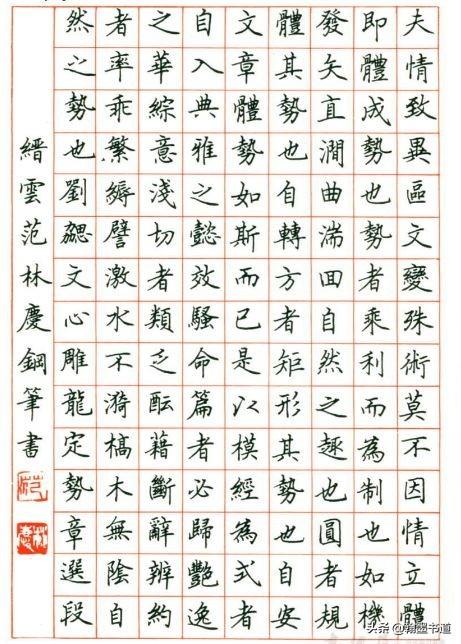 夫情致異區文變殊術莫不因情立體
即體成勢也勢者乘利而為制也如機
發矢直澗曲湍回自然之趣也圓者規
體其勢也自轉方者矩形其勢也自安
文章體勢如斯而已是以模經為式者
自入典雅之懿效騷命篇者必歸艷逸
之華綜意淺切者類乏醖藉斷辭辨約
者率乖繁縟譬激水不漪槁木無陰自
然之勢也劉勰文心雕龍定勢章選段
縉雲范林慶鋼筆書
范
头条 @翰墨书道